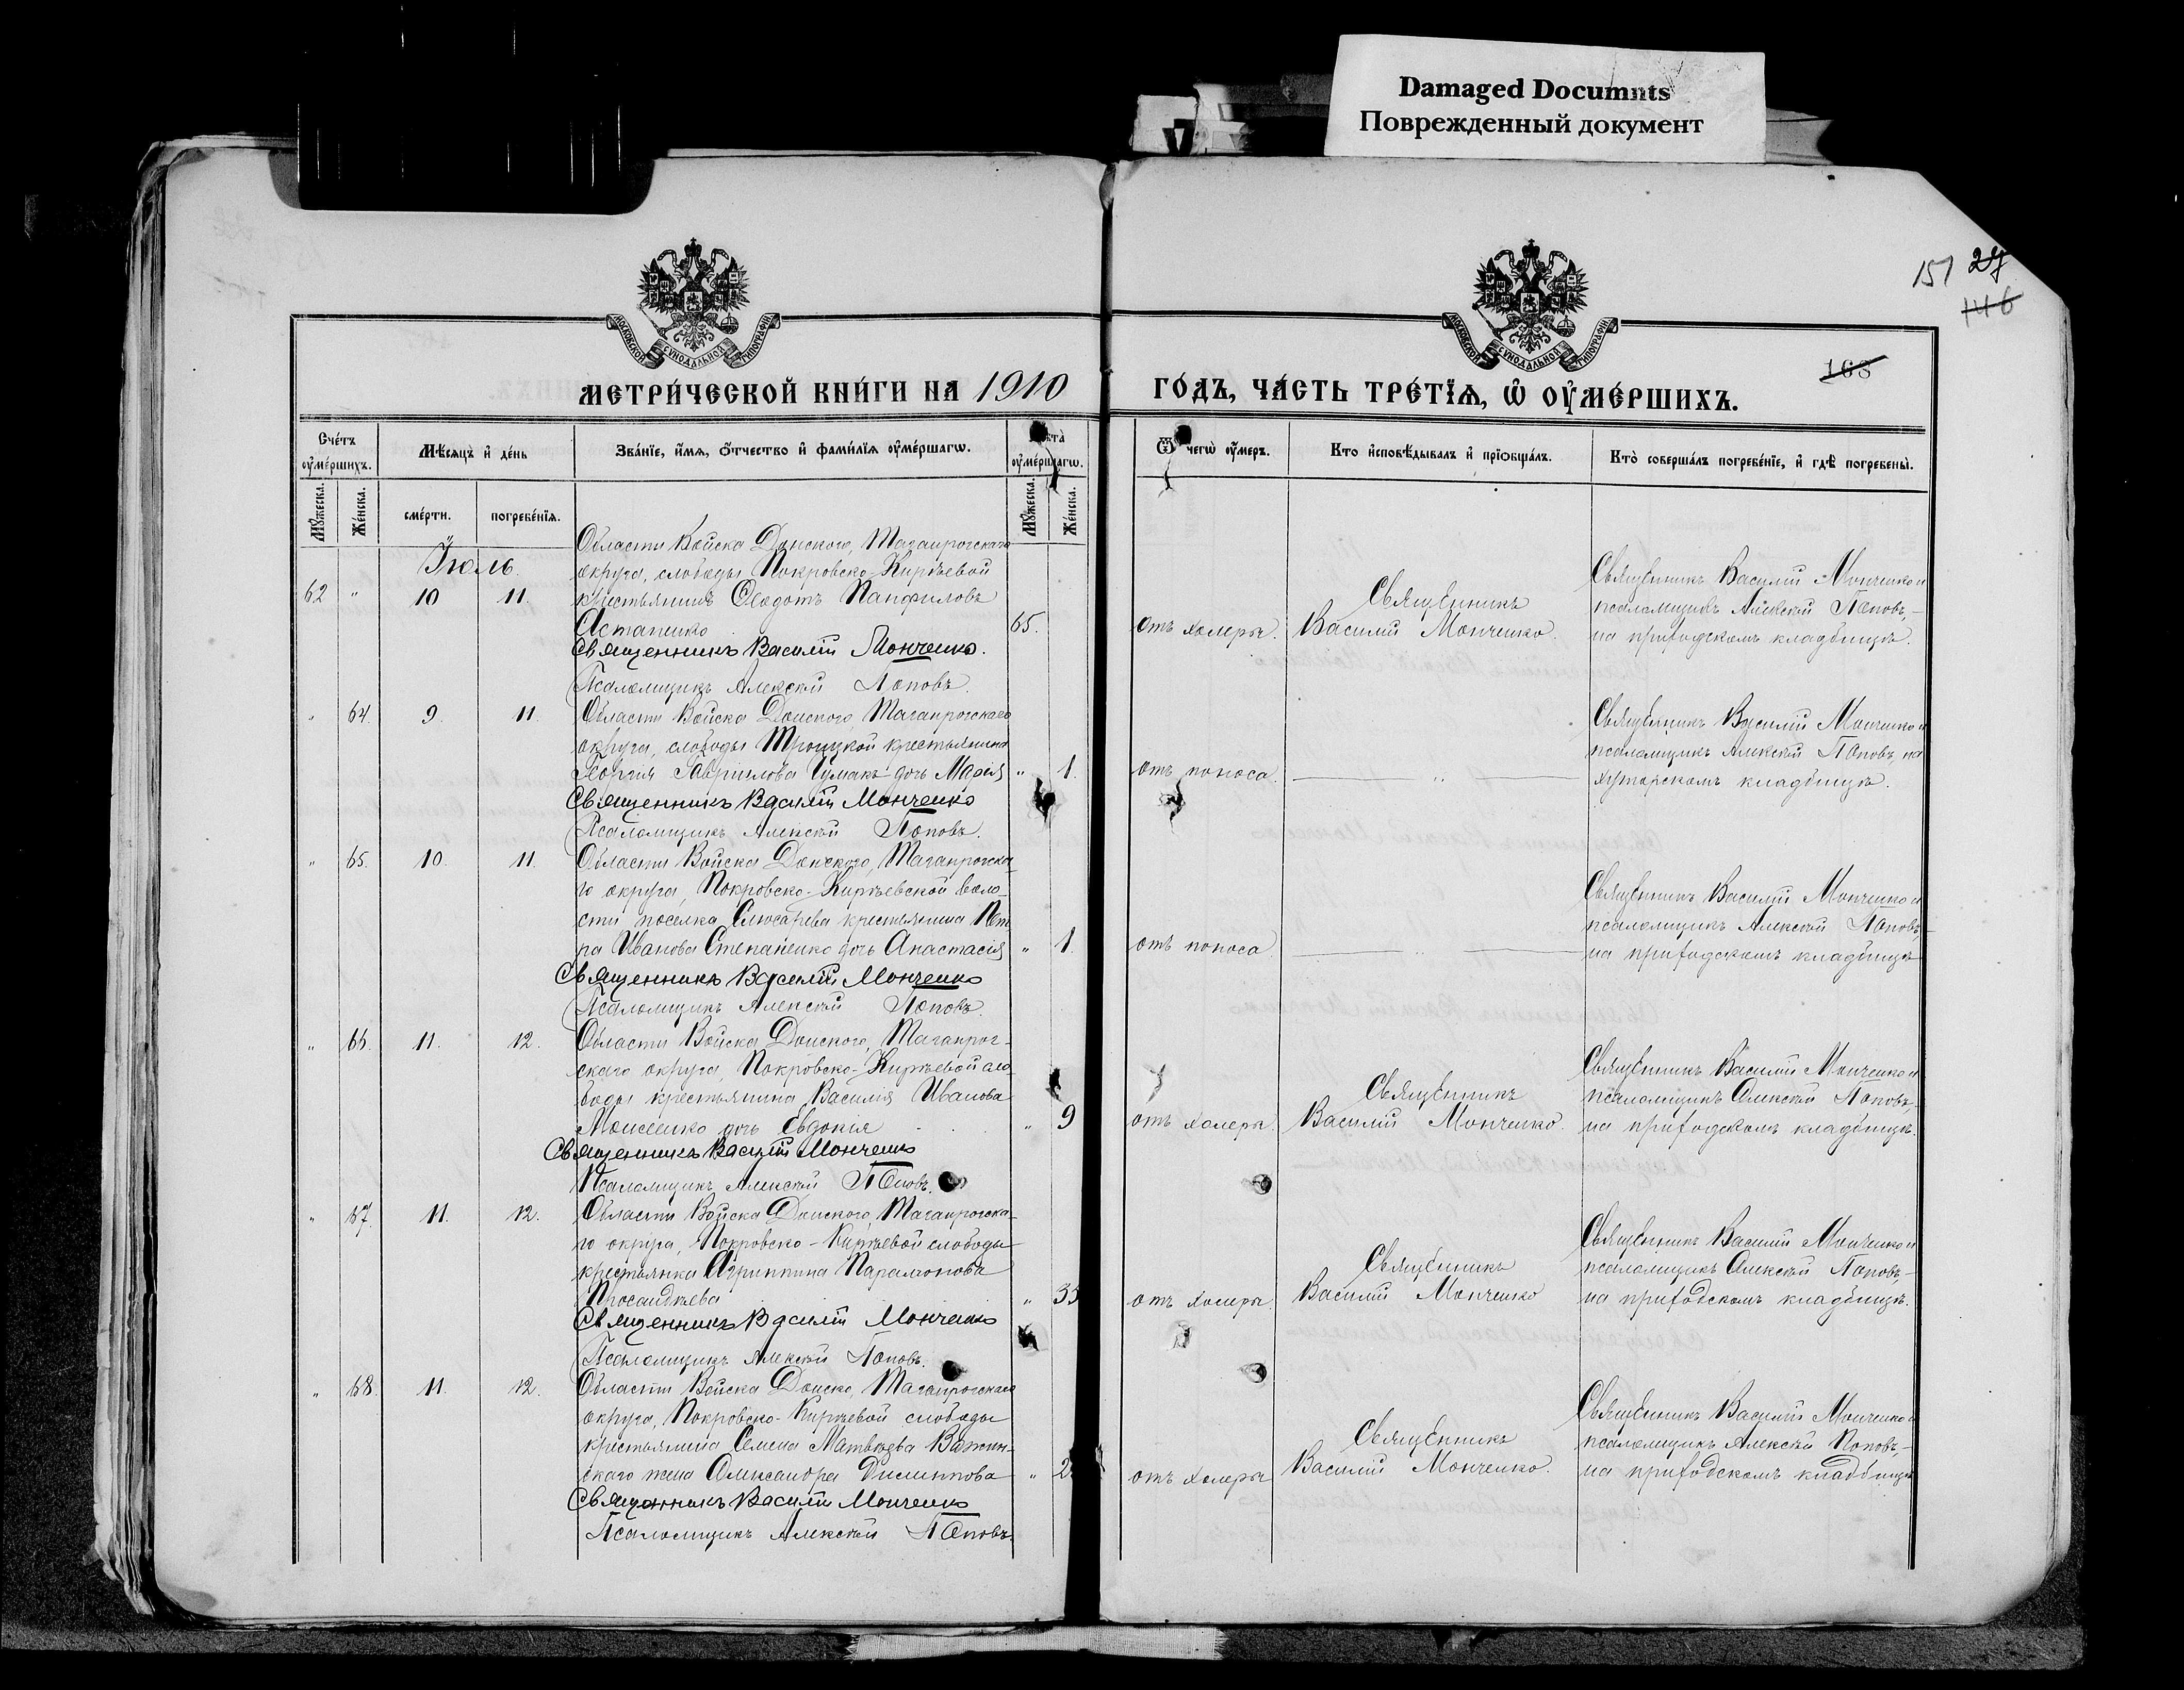 Damaged Documnts
Поврежденный документ
151 27
146
168
МОСКОВСКОЙ СѴНОДАЛЬНОЙ ТИПОГРАФІИ
МОСКОВСКОЙ СѴНОДАЛЬНОЙ ТИПОГРАФІИ
МЕТРИ́ЧЕСКОЙ КНИ́ГИ НА 1910 ГО́ДЪ, ЧА́СТЬ ТРЕ́ТЇѦ, Ѡ҆ ОУ҆МЕ́РШИХЪ.
Сче́тъ оу҆ме́ршихъ.
Мѣ́сяцъ и҆ де́нь
Зва́нїе, и҆́мѧ, ѻ҆́тчество и҆ фами́лїѧ оу҆ме́ршагѡ.
Лѣта̀ оу҆ме́ршагѡ.
Ѿ чегѡ̀ оу҆́меръ.
Кто и҆сповѣ́дывалъ и҆ прїѡбща́лъ.
Кто̀ соверша́лъ погребе́нїе, и҆ гдѣ̀ погребены̀.
Мꙋ́жеска.
Же́нска.
сме́рти.
погребе́нїѧ.
Мꙋ́жеска.
Же́нска.
Іюль
Области Войска Донского, Таганрогскаго
округа, слободы Покровско-Кирѣевой
62 " 10 11. крестьянинъ Ѳеодотъ Панфиловъ
Остапенко 65.
Священникъ Василій Монченко.
Псаломщикъ Алексѣй Поповъ.
отъ холеры.
Священникъ
Василій Монченко.
Священникъ Василій Монченко и
псаломщикъ Алексѣй Поповъ,-
на приходскомъ кладбищѣ.
" 64. 9. 11. Области Войска Донского Таганрогскаго
округа, слободы Троицкой крестьянина
Георгія Гавріилова Чумакъ дочь Марія " 1.
Священникъ Василій Мончеико
Псаломщикъ Алексѣй Поповъ.
отъ поноса.
"
Священникъ Василій Мончеико и
псаломщикъ Алексѣй Поповъ, на
хуторскомъ кладбищѣ.
" 65. 10. 11. Области Войска Донского, Таганрогска-
го округа, Покровско-Кирѣевской воло-
сти поселка Слюсарева крестьянина Пет
ра Иванова Степаненко дочь Анастасія " 1.
Священникъ Василій Мончеико
Псаломщикъ Алексѣй Поповъ.
отъ поноса.
"
Священникъ Василій Мончеико и
псаломщикъ Алексѣй Поповъ,-
на приходскомъ кладбищѣ
" 66. 11. 12. Области Войска Донского, Таганрог-
скаго округа, Покровско-Кирѣевой сло
боды крестьянина Василія Иванова
Моисеико дочь Евдокія " 9
Священникъ Василій Мончеико
Псаломщикъ Алексѣй Поповъ.
отъ холеры.
Священникъ
Василій Мончеико.
Священникъ Василій Мончеико и
псаломщикъ Алексѣй Поповъ,-
на приходскомъ кладбищѣ.
" 67. 11. 12. Области Войска Донского, Таганрогска-
го округа, Покровско-Кирѣевой слободы
крестьянка Агриппина Парамонова
Просандѣева " 35
Священникъ Василій Мончеико
Псаломщикъ Алексѣй Поповъ.
отъ холеры.
Священникъ
Василій Мончеико
Священникъ Василій Мончеико и
псаломщикъ Алексѣй Поповъ,-
на приходскомъ кладбищѣ.
" 68. 11. 12. Области Войска Донско, Таганрогскаго
округа, Покровско-Кирѣевой слободы
крестьянина Семена Матвѣева Важин-
скаго жена Александра Филиппова " 2
Священникъ Василій Мончеико
Псаломщикъ Алексѣй Поповъ.
отъ холеры
Священникъ
Василій Мончеико.
Священникъ Василій Мончеико и
псаломщикъ Алексѣй Поповъ,-
на приходскомъ кладбищѣ